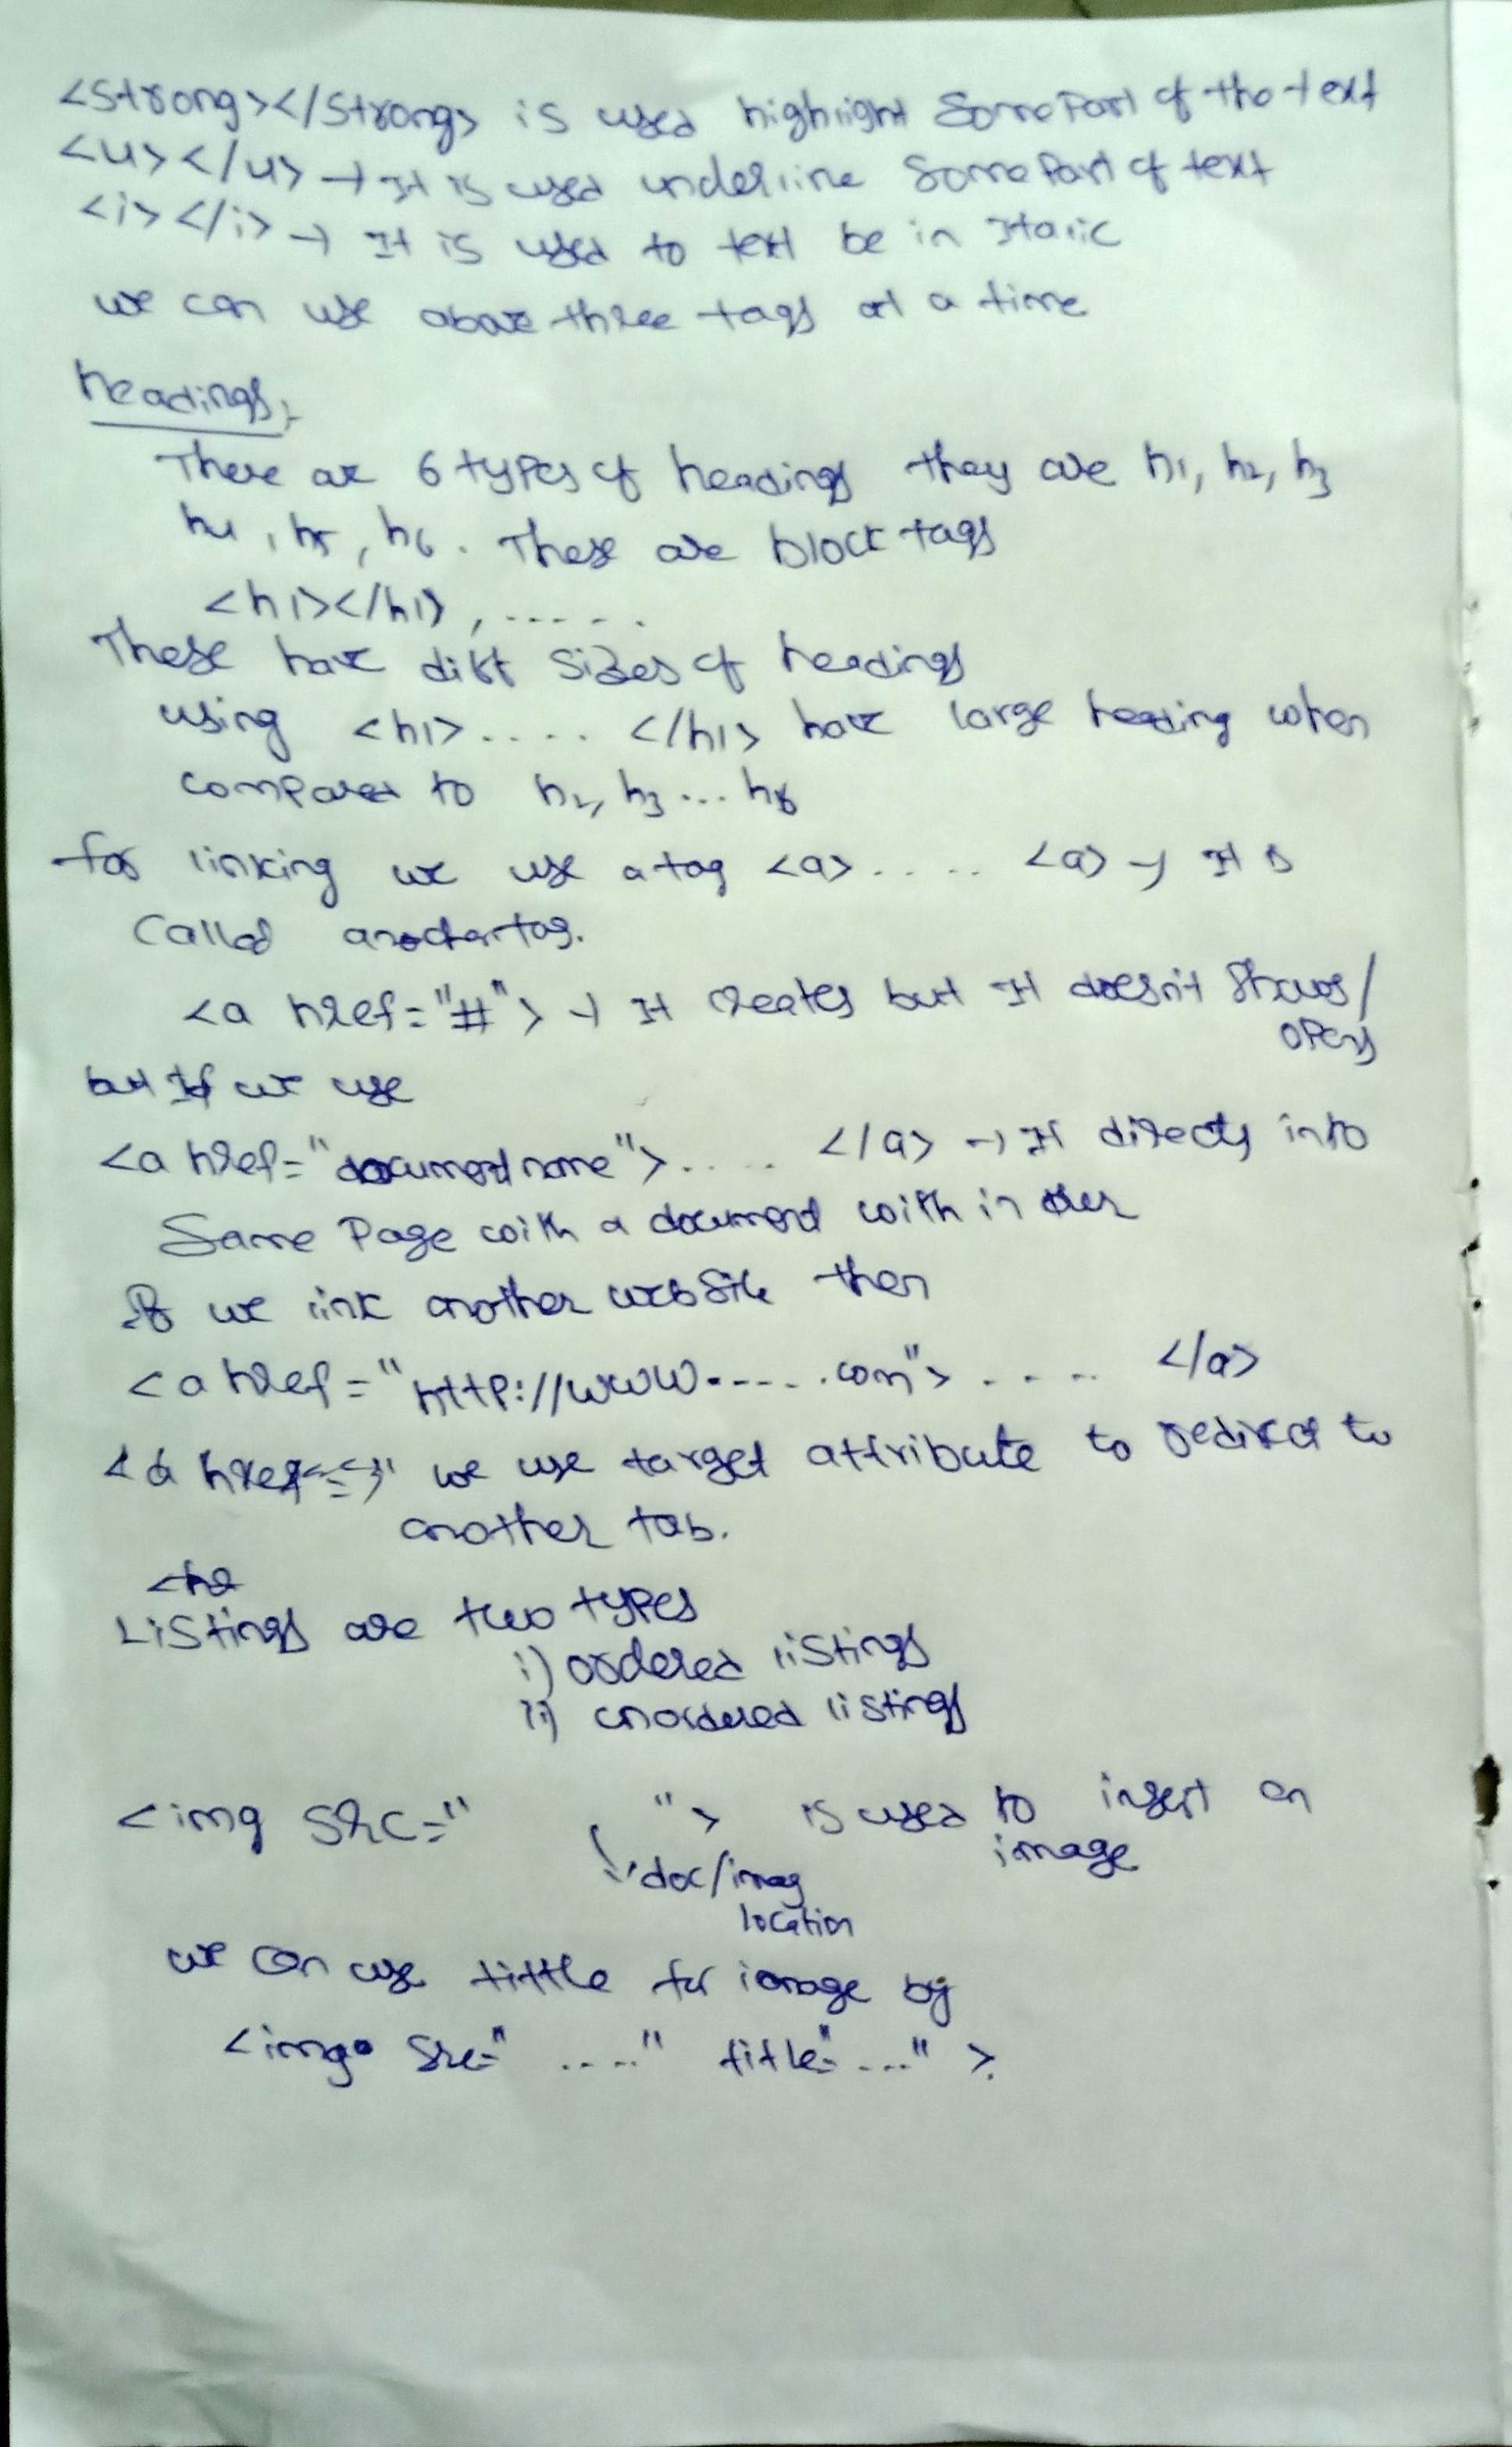 <strong></strong> is used highlight Some Part of the text
<u></u> → It is used underline Some Part of text
<i></i> → It is used to text be in Italic
we can use above three tags at a time
headings:-
There are 6 types of headings they are h1, h2, h3
h4, h5, h6. These are block tags
<h1></h1>, ......
These have diff Sizes of headings
using <h1>..... </h1> have large heading when
compared to h2, h3 ... h6
for linking we use a tag <a>..... <a> → It is
Called anochar tag.
<a href="#"> → It creates but It doesn't Shows/
opens
but If we use
<a href="document name">..... </a> → It directly into
Same Page with a document with in
If we link another web Site then
<a href="http://www.-----.com">..... </a>
<a href= we use target attribute to redirect to
another tab.
<h2
Listings are two types
i) ordered listings
ii) unordered listings
<img Src=" "> is used to insert an
image
doc/imag
location
we can use tittle for image by
<img Src="....." title="..." >.